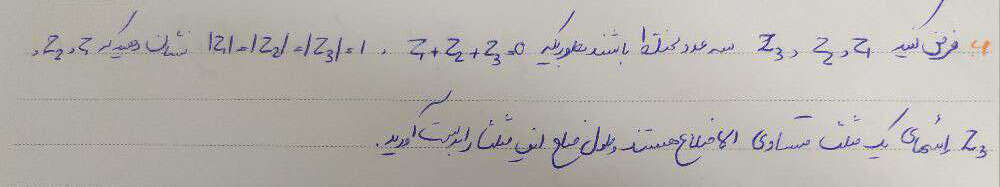 ۹) فرض کنید z₁ , z₂ , z₃ سه عدد مختلط باشند بطوریکه z₁+z₂+z₃=0 , |z₁|=|z₂|=|z₃|=1 نشان دهید که z₁ , z₂ ,
z₃ راسهای یک مثلث متساوی الاضلاع هستند و طول ضلع این مثلث را بدست آورید.